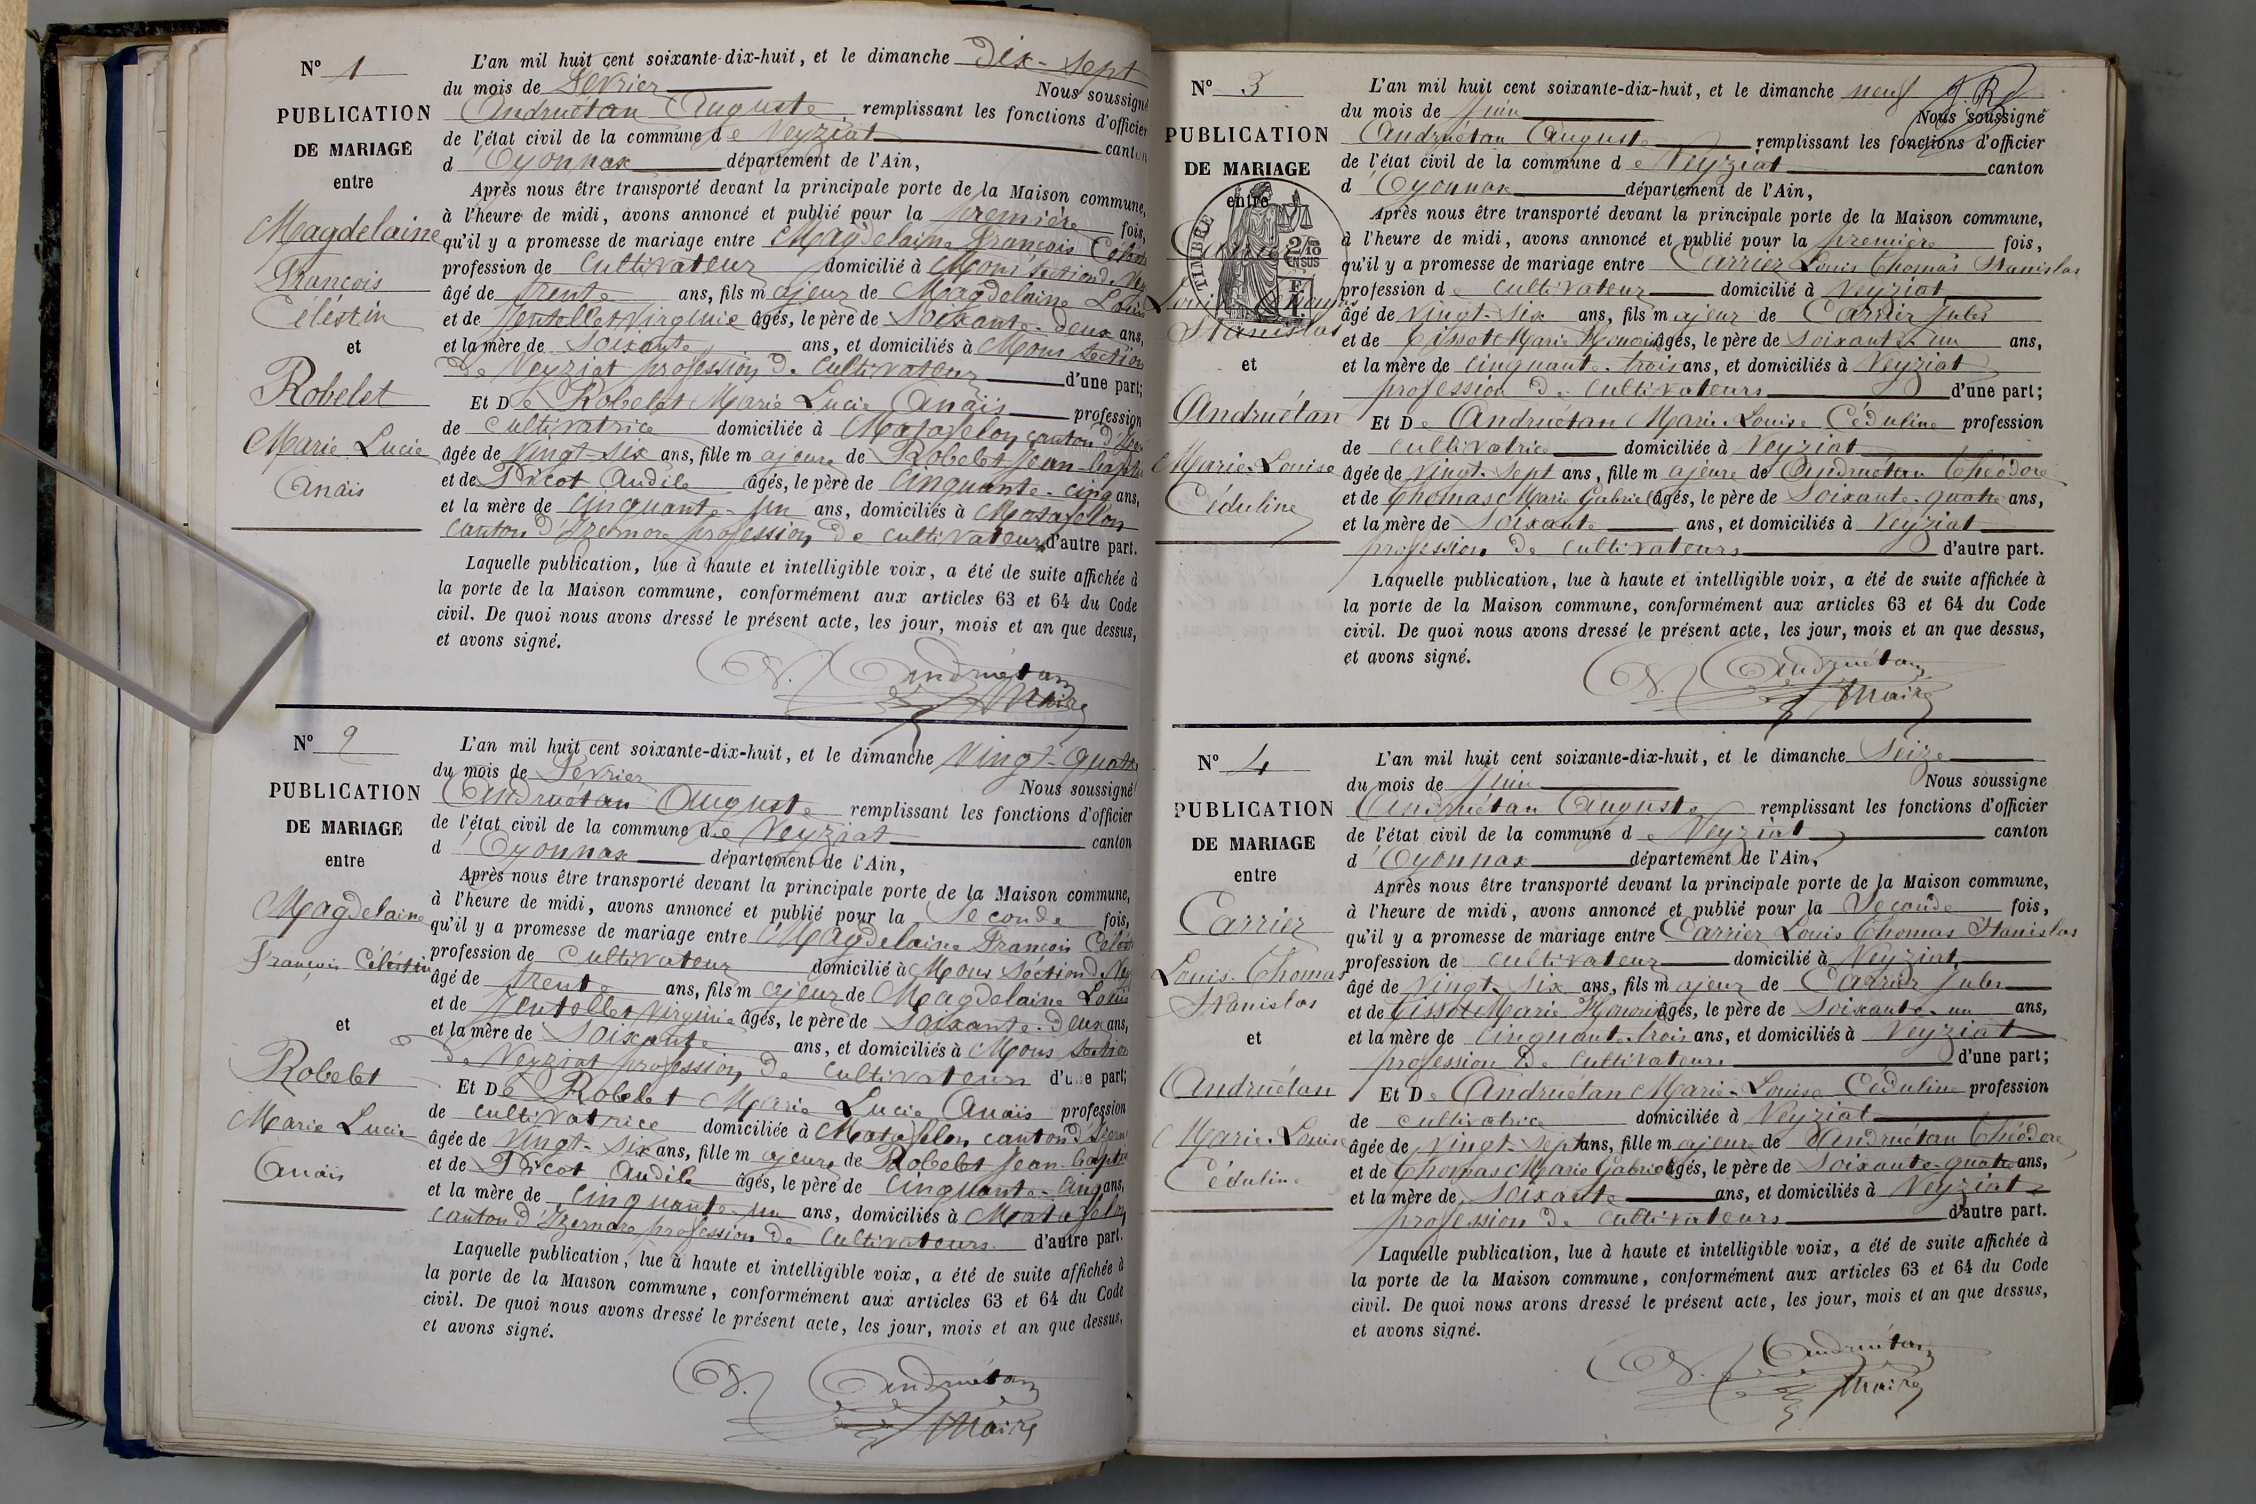 N° 1
PUBLICATION
DE MARIAGE
entre
Magdelaine
François
Célestin
et
Robelet
Marie Lucie
Anaïs
L'an mil huit cent soixante-dix-huit, et le dimanche dix-sept
du mois de Février Nous soussigné
Andruétan Auguste remplissant les fonctions d'officier
de l'état civil de la commune de Veyziat canton
d'Oyonnax département de l'Ain,
Après nous être transporté devant la principale porte de la Maison commune,
à l'heure de midi, avons annoncé et publié pour la première fois,
qu'il y a promesse de mariage entre Magdelaine François Célestin
profession de cultivateur domicilié à Mons section de Vey
âgé de trente ans, fils majeur de Magdelaine Louis
et de Jentellet Virginie âgés, le père de Soixante-deux ans,
et la mère de Soixante ans, et domiciliés à Mons section
de Veyziat profession de cultivateur d'une part;
Et De Robelet Marie Lucie Anaïs profession
de cultivatrice domiciliée à Matafelon canton d'Izer
âgée de Vingt-six ans, fille majeure de Robelet Jean-baptis
et de Picot Audile âgés, le père de Cinquante-cinq ans,
et la mère de cinquante-un ans, domiciliés à Matafelon
canton d'Izernore profession de cultivateurs d'autre part.
Laquelle publication, lue à haute et intelligible voix, a été de suite affichée à
la porte de la Maison commune, conformément aux articles 63 et 64 du Code
civil. De quoi nous avons dressé le présent acte, les jour, mois et an que dessus,
et avons signé.
Andruétan
Maire
N° 2
PUBLICATION
DE MARIAGE
entre
Magdelaine
François Célestin
et
Robelet
Marie Lucie
Anaïs
L'an mil huit cent soixante-dix-huit, et le dimanche Vingt-quatre
du mois de Février Nous soussigné
Andruétan Auguste remplissant les fonctions d'officier
de l'état civil de la commune de Veyziat canton
d'Oyonnax département de l'Ain,
Après nous être transporté devant la principale porte de la Maison commune,
à l'heure de midi, avons annoncé et publié pour la Seconde fois,
qu'il y a promesse de mariage entre Magdelaine François Célest
profession de cultivateur domicilié à Mons section de Vey
âgé de trente ans, fils majeur de Magdelaine Louis
et de Jentellet Virginie âgés, le père de Soixante-deux ans,
et la mère de Soixante ans, et domiciliés à Mons section
de Veyziat profession de cultivateurs d'une part;
Et De Robelet Marie Lucie Anaïs profession
de cultivatrice domiciliée à Matafelon canton d'Izern
âgée de Vingt-six ans, fille majeure de Robelet Jean-baptis
et de Picot Audile âgés, le père de Cinquante-cinq ans,
et la mère de Cinquante-un ans, domiciliés à Matafelon
canton d'Izernore profession de cultivateurs d'autre part.
Laquelle publication, lue à haute et intelligible voix, a été de suite affichée à
la porte de la Maison commune, conformément aux articles 63 et 64 du Code
civil. De quoi nous avons dressé le présent acte, les jour, mois et an que dessus,
et avons signé.
Andruétan
Maire
N° 3
PUBLICATION
DE MARIAGE
entre
TIMBRE
2/10
EN SUS
Carrier
Louis Thomas
Stanislas
et
Andruétan
Marie-Louise
Céduline
L'an mil huit cent soixante-dix-huit, et le dimanche neuf
du mois de Juin Nous soussigné
Andruétan Auguste remplissant les fonctions d'officier
de l'état civil de la commune de Veyziat canton
d'Oyonnax département de l'Ain,
Après nous être transporté devant la principale porte de la Maison commune,
à l'heure de midi, avons annoncé et publié pour la première fois,
qu'il y a promesse de mariage entre Carrier Louis Thomas Stanislas
profession de cultivateur domicilié à Veyziat
âgé de Vingt-six ans, fils majeur de Carrier Jules
et de Tissot Marie Honorine âgés, le père de Soixante-un ans,
et la mère de cinquante-trois ans, et domiciliés à Veyziat
profession de cultivateurs d'une part;
Et De Andruétan Marie-Louise Céduline profession
de cultivatrice domiciliée à Veyziat
âgée de Vingt-sept ans, fille majeure de Andruétan Théodore
et de Thomas Marie Gabriel âgés, le père de Soixante-quatre ans,
et la mère de Soixante ans, et domiciliés à Veyziat
profession de cultivateurs d'autre part.
Laquelle publication, lue à haute et intelligible voix, a été de suite affichée à
la porte de la Maison commune, conformément aux articles 63 et 64 du Code
civil. De quoi nous avons dressé le présent acte, les jour, mois et an que dessus,
et avons signé.
Andruétan
Maire
N° 4
PUBLICATION
DE MARIAGE
entre
Carrier
Louis-Thomas
Stanislas
et
Andruétan
Marie-Louise
Céduline
L'an mil huit cent soixante-dix-huit, et le dimanche Seize
du mois de Juin Nous soussigné
Andruétan Auguste remplissant les fonctions d'officier
de l'état civil de la commune de Veyziat canton
d'Oyonnax département de l'Ain,
Après nous être transporté devant la principale porte de la Maison commune,
à l'heure de midi, avons annoncé et publié pour la Seconde fois,
qu'il y a promesse de mariage entre Carrier Louis Thomas Stanislas
profession de cultivateur domicilié à Veyziat
âgé de Vingt-six ans, fils majeur de Carrier Jules
et de Tissot Marie Honorine âgés, le père de Soixante-un ans,
et la mère de cinquante-trois ans, et domiciliés à Veyziat
profession De cultivateurs d'une part;
Et De Andruétan Marie-Louise Céduline profession
de cultivatrice domiciliée à Veyziat
âgée de Vingt-sept ans, fille majeure de Andruétan Théodore
et de Thomas Marie Gabriel âgés, le père de Soixante-quatre ans,
et la mère de Soixante ans, et domiciliés à Veyziat
profession de cultivateurs d'autre part.
Laquelle publication, lue à haute et intelligible voix, a été de suite affichée à
la porte de la Maison commune, conformément aux articles 63 et 64 du Code
civil. De quoi nous avons dressé le présent acte, les jour, mois et an que dessus,
et avons signé.
Andruétan
Maire